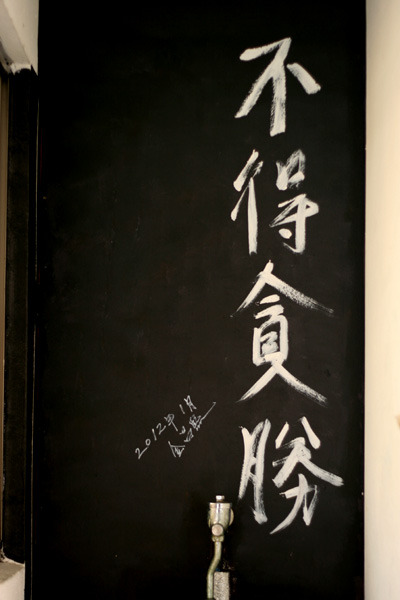 不得貪勝
2012年1月